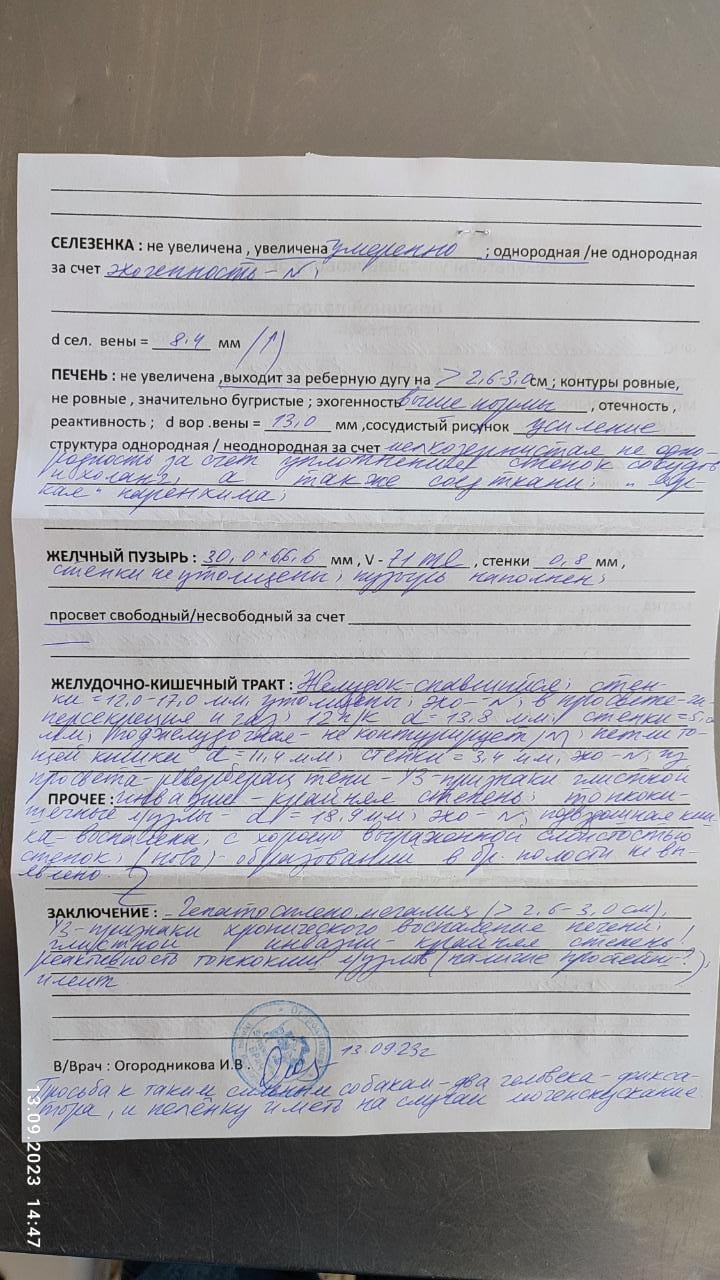 СЕЛЕЗЕНКА : не увеличена , увеличена умеренно ; однородная /не однородная
за счет эхогенность - N ;
d сел. вены = 8,4 мм (↑)
ПЕЧЕНЬ : не увеличена ,выходит за реберную дугу на > 2,6-3,0 см ; контуры ровные,
не ровные , значительно бугристые ; эхогенность выше нормы , отечность ,
реактивность ; d вор .вены = 13,0 мм ,сосудистый рисунок усиление
структура однородная / неоднородная за счет мелкозернистая не одно-
родность за счет уплотнения стенок сосудов
и холанг, а также соед ткани;
паренхима;
ЖЕЛЧНЫЙ ПУЗЫРЬ : 30,0 × 66,6 мм , V - 71 ml , стенки 0,8 мм ,
стенки не утолщены; пузырь наполнен;
просвет свободный/несвободный за счет
—
ЖЕЛУДОЧНО-КИШЕЧНЫЙ ТРАКТ : Желудок-спавшийся; стен-
ки =12,0-17,0 мм утолщены; эхо-N; в просвете-ги-
персекреция и газ; 12 п/к d = 13,8 мм; стенки =5,
мм; поджелудочная - не контурирует/N; петли то-
щей кишки d = 11,4 мм; стенки = 3,4 мм, эхо-N; из
просвета-ревербер тени - УЗ-признаки глистной
ПРОЧЕЕ : инвазии - крайняя степень; тонкоки-
шечные л/узлы - d = 18,9 мм; эхо - N; подвздошная киш
ка-воспалена, с хорошо выраженной слоистостью
стенок; (ново)- образований в бр. полости не вы-
явлено.
ЗАКЛЮЧЕНИЕ : Гепатоспленомегалия (> 2,6-3,0 см),
УЗ-признаки хронического воспаления печени;
глистной инвазии - крайняя степень!
реактивность тонкокиш л/узлов (наличие простейш-?);
илеит.
В/Врач : Огородникова И.В .
13.09.23г
Просьба к таким сильным собакам - два человека-фикса-
тора, и пелёнку иметь на случай мочеиспускания.
13.09.2023 14:47